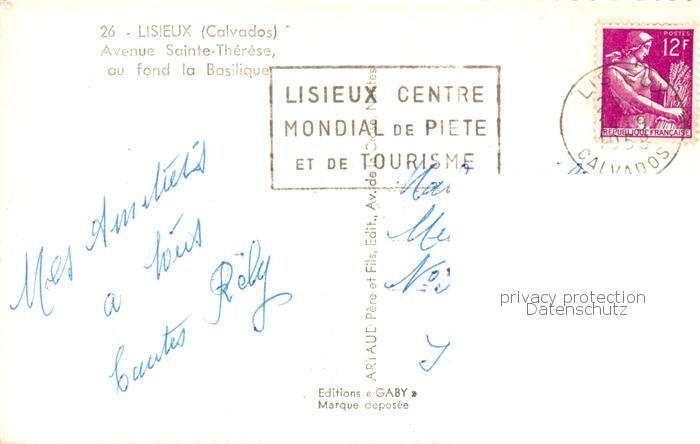 26 - LISIEUX (Calvados)
Avenue Sainte-Thérèse,
au fond la Basilique
LISIEUX CENTRE
MONDIAL DE PIETE
ET DE TOURISME
POSTES
12F
REPUBLIQUE FRANÇAISE
CALVADOS
Mes Amitiés
a tous
ARTAUD Père et Fils, Edit., Av. de la Close, Nantes
privacy protection
Datenschutz
Editions « GABY »
Marque déposée